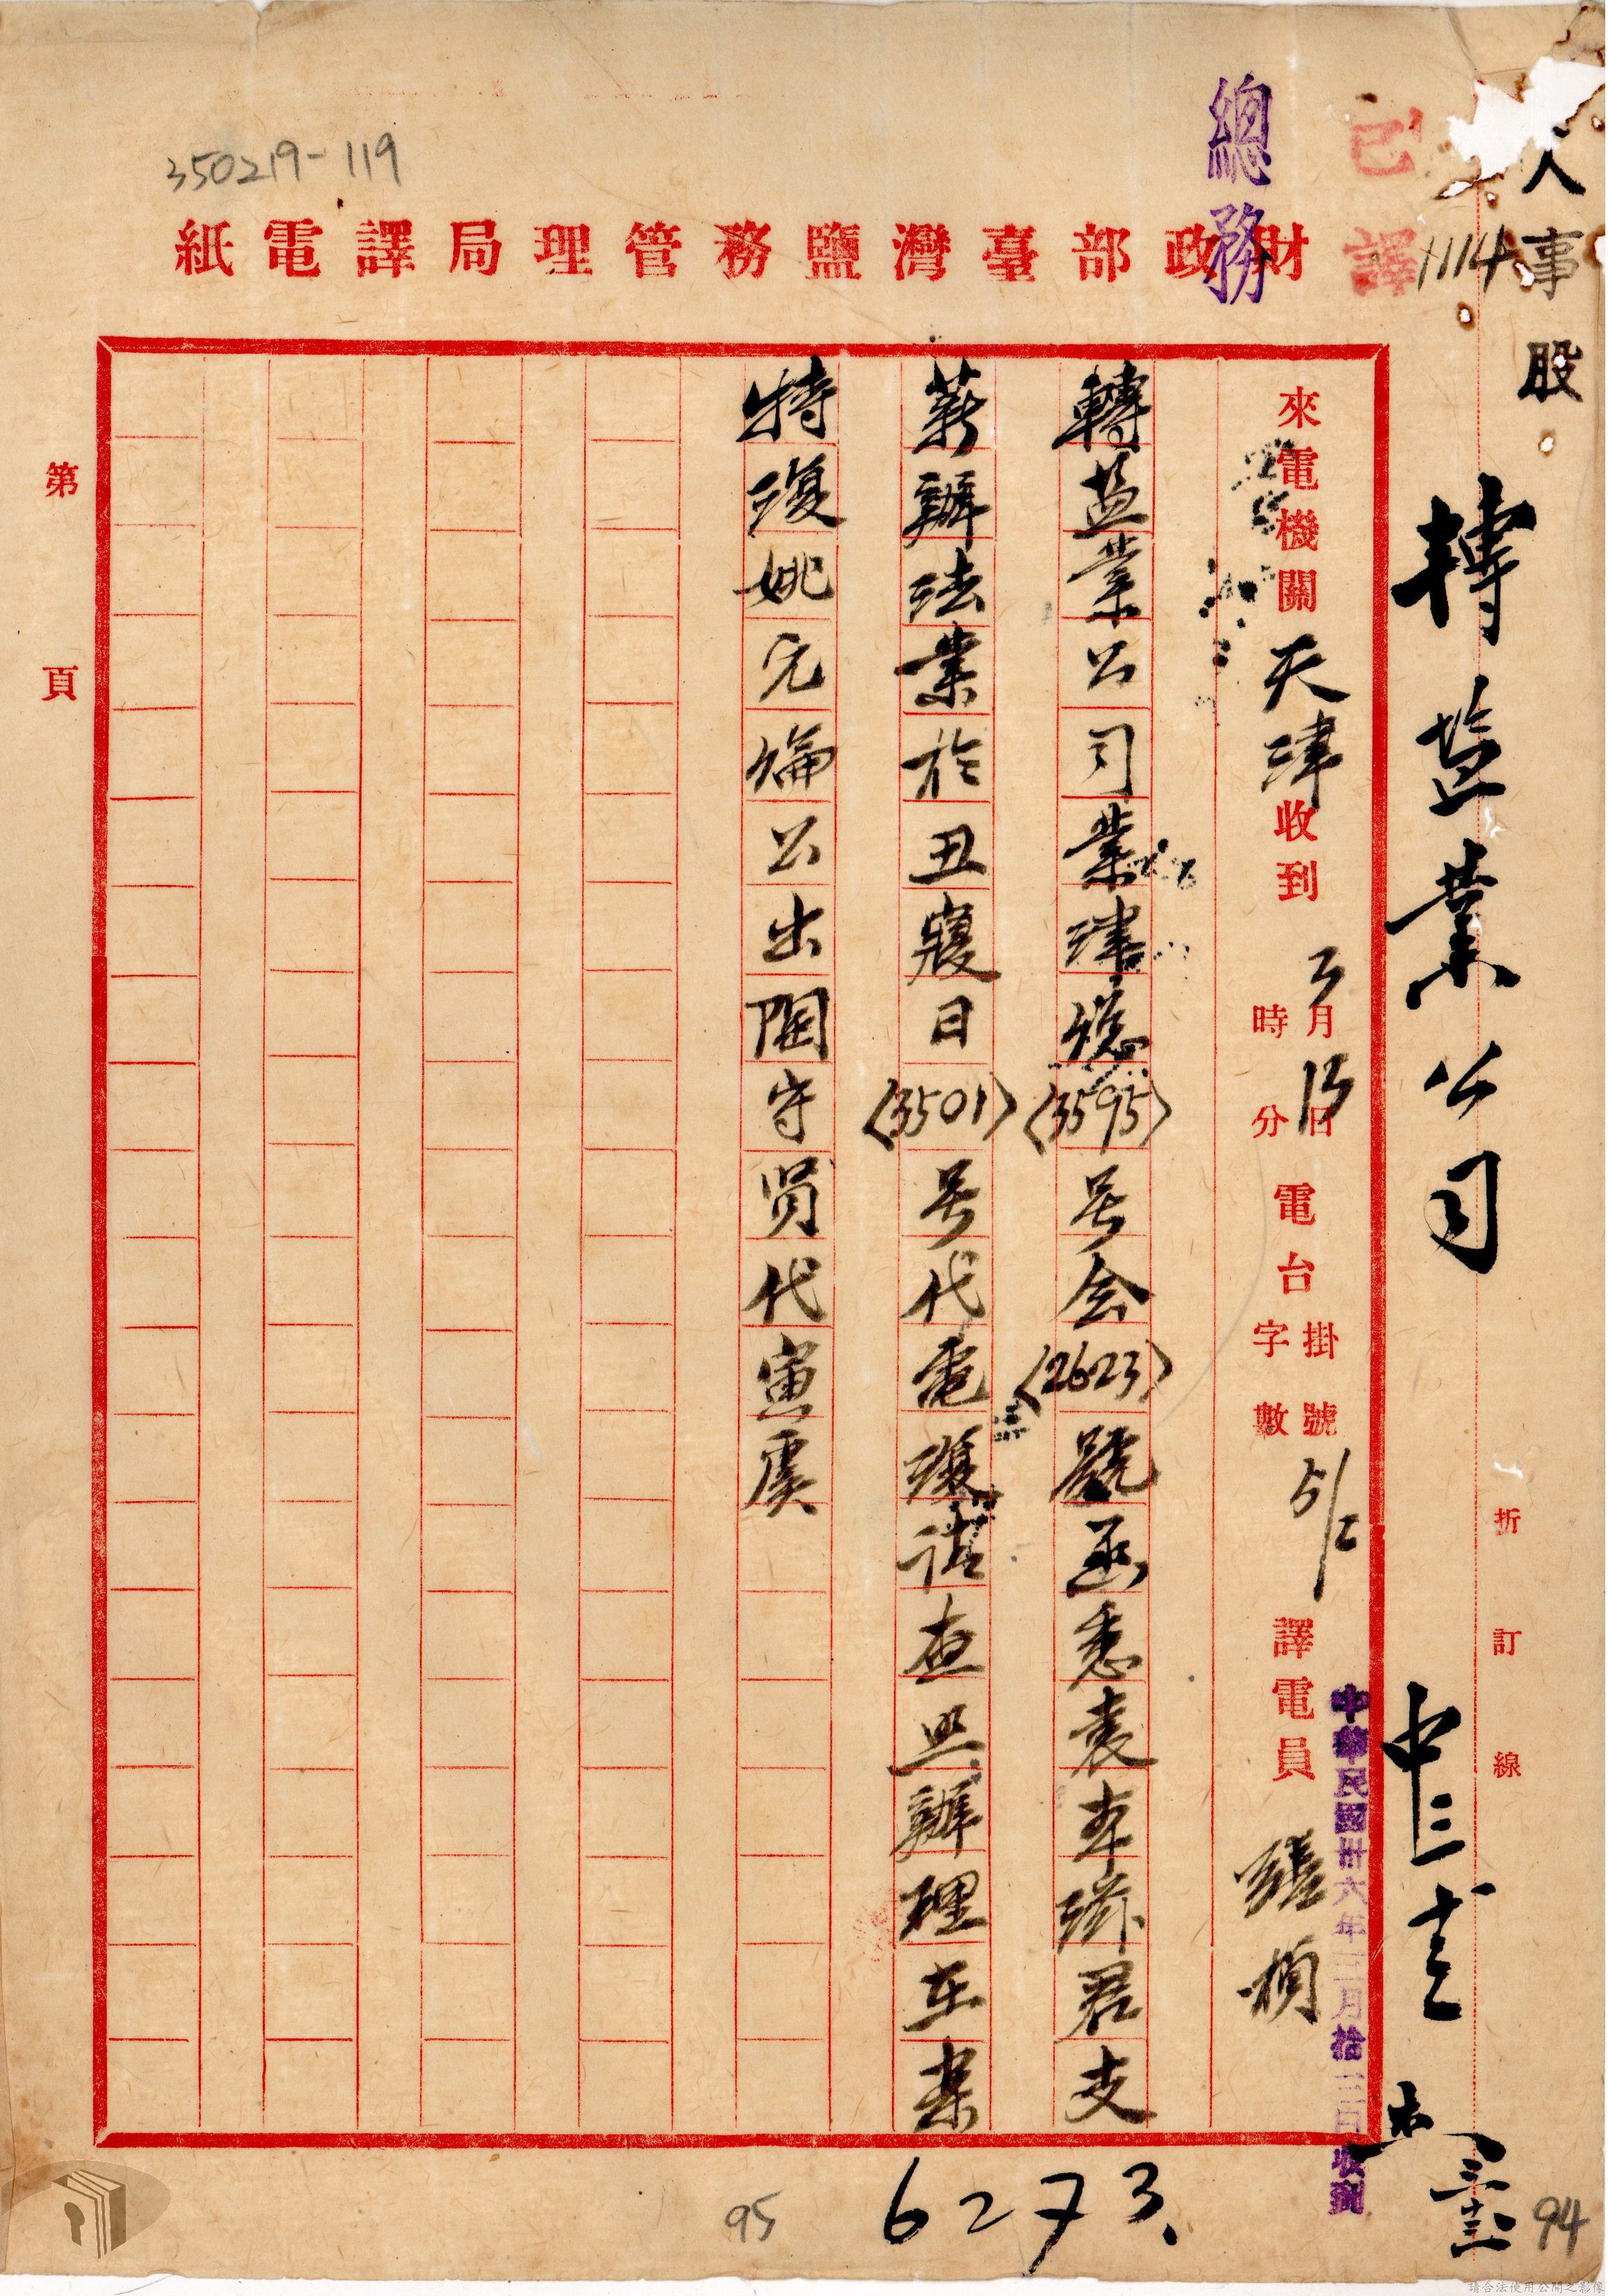 350219-119
總務
已譯
1114
人事股
財政部臺灣鹽務管理局譯電紙
轉盐業公司
來電機關 天津 收到 3月13日 時 分 電台 掛號 字數 51/2 譯電員
轉盐業公司業津總(3595)号会(2623)號函悉袁本瑜君支
薪辦法業於丑寢日(3501)号代電復請查照辦理在案
特復姚元綸公出閻守贤代寅虞
第 頁
折訂線
中華民國卅六年三月拾三日收到
6273
95
94
請合法使用公開之影像